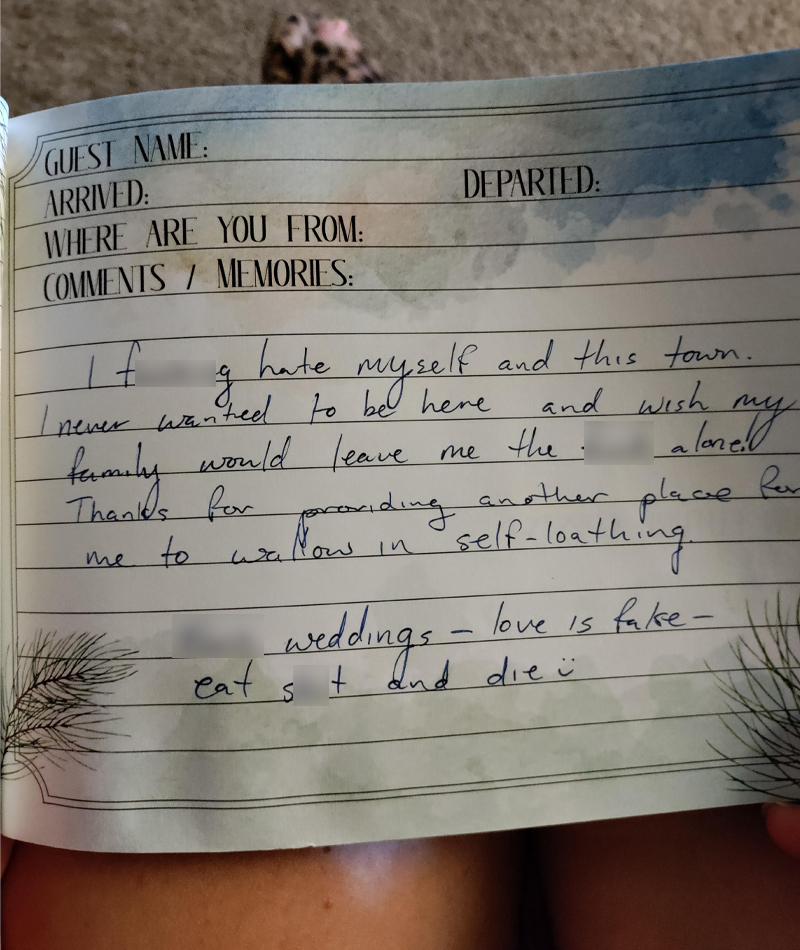 GUEST NAME:
ARRIVED: DEPARTED:
WHERE ARE YOU FROM:
COMMENTS / MEMORIES:
I f g hate myself and this town.
I never wanted to be here and wish my
family would leave me the alone!
Thanks for providing another place for
me to wallow in self-loathing.
weddings – love is fake –
eat s t and die ü